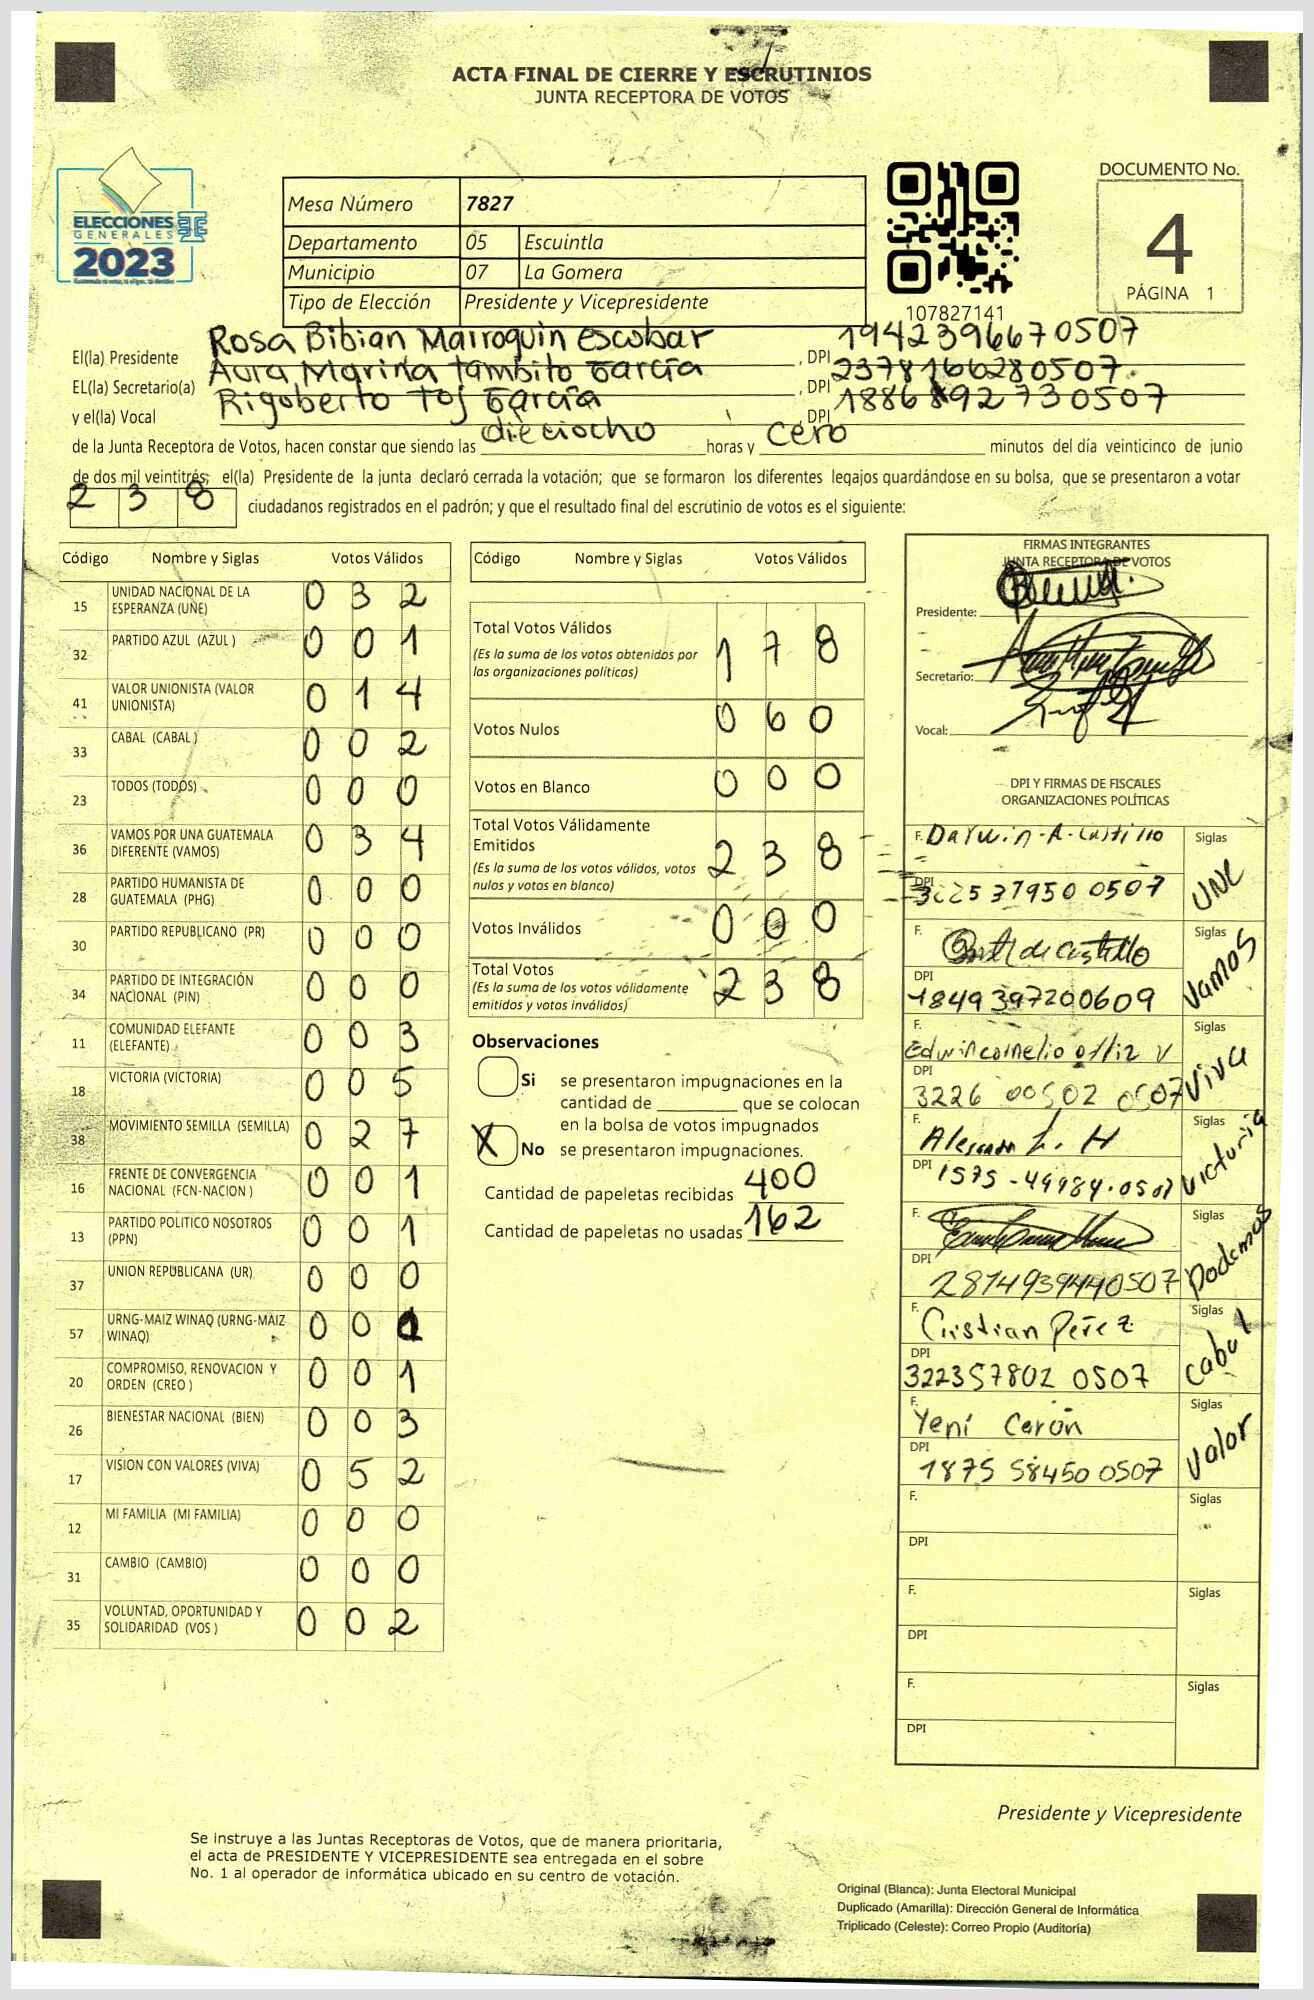 ACTA FINAL DE CIERRE Y ESCRUTINIOS
JUNTA RECEPTORA DE VOTOS
ELECCIONES
GENERALES
2023
Mesa Número 7827
Departamento 05 Escuintla
Municipio 07 La Gomera
Tipo de Elección Presidente y Vicepresidente
107827141
DOCUMENTO No.
4
PÁGINA 1
El(la) Presidente Rosa Bibian Marroquin Escobar , DPI 1942396670507
EL(la) Secretario(a) Aura Marina Tambito García , DPI 2378166280507
y el(la) Vocal Rigoberto Toj García , DPI 1886892730507
de la Junta Receptora de Votos, hacen constar que siendo las dieciocho horas y cero minutos del día veinticinco de junio
de dos mil veintitrés; el(la) Presidente de la junta declaró cerrada la votación; que se formaron los diferentes legajos guardándose en su bolsa, que se presentaron a votar
2 3 8 ciudadanos registrados en el padrón; y que el resultado final del escrutinio de votos es el siguiente:
Código Nombre y Siglas Votos Válidos
15 UNIDAD NACIONAL DE LA ESPERANZA (UNE) 0 3 2
32 PARTIDO AZUL (AZUL ) 0 0 1
41 VALOR UNIONISTA (VALOR UNIONISTA) 0 1 4
33 CABAL (CABAL ) 0 0 2
23 TODOS (TODOS) 0 0 0
36 VAMOS POR UNA GUATEMALA DIFERENTE (VAMOS) 0 3 4
28 PARTIDO HUMANISTA DE GUATEMALA (PHG) 0 0 0
30 PARTIDO REPUBLICANO (PR) 0 0 0
34 PARTIDO DE INTEGRACIÓN NACIONAL (PIN) 0 0 0
11 COMUNIDAD ELEFANTE (ELEFANTE) 0 0 3
18 VICTORIA (VICTORIA) 0 0 5
38 MOVIMIENTO SEMILLA (SEMILLA) 0 2 7
16 FRENTE DE CONVERGENCIA NACIONAL (FCN-NACION ) 0 0 1
13 PARTIDO POLITICO NOSOTROS (PPN) 0 0 1
37 UNION REPUBLICANA (UR) 0 0 0
57 URNG-MAIZ WINAQ (URNG-MAIZ WINAQ) 0 0 1
20 COMPROMISO, RENOVACION Y ORDEN (CREO ) 0 0 1
26 BIENESTAR NACIONAL (BIEN) 0 0 3
17 VISION CON VALORES (VIVA) 0 5 2
12 MI FAMILIA (MI FAMILIA) 0 0 0
31 CAMBIO (CAMBIO) 0 0 0
35 VOLUNTAD, OPORTUNIDAD Y SOLIDARIDAD (VOS ) 0 0 2
Código Nombre y Siglas Votos Válidos
Total Votos Válidos 1 7 8
(Es la suma de los votos obtenidos por
las organizaciones políticas)
Votos Nulos 0 6 0
Votos en Blanco 0 0 0
Total Votos Válidamente
Emitidos 2 3 8
(Es la suma de los votos válidos, votos
nulos y votos en blanco)
Votos Inválidos 0 0 0
Total Votos 2 3 8
(Es la suma de los votos válidamente
emitidos y votos inválidos)
Observaciones
Si se presentaron impugnaciones en la
cantidad de ________ que se colocan
en la bolsa de votos impugnados
X No se presentaron impugnaciones.
Cantidad de papeletas recibidas 400
Cantidad de papeletas no usadas 162
FIRMAS INTEGRANTES
JUNTA RECEPTORA DE VOTOS
Presidente:
Secretario:
Vocal:
DPI Y FIRMAS DE FISCALES
ORGANIZACIONES POLÍTICAS
F. Darwin-A-Castillo Siglas UNE
DPI 322537950 0507
F. de Castillo Siglas Vamos
DPI 1849397200609
F. Edwin Cornelio Siglas Viva
DPI 3226 00502 0507
F. L. H Siglas Victoria
DPI 1575-49984-0507
F. Siglas Podemos
DPI 2814939440507
F. Cristian Pérez Siglas Cabal
DPI 322357802 0507
F. Yeni Cerón Siglas Valor
DPI 1875 58450 0507
F. Siglas
DPI
F. Siglas
DPI
F. Siglas
DPI
Presidente y Vicepresidente
Se instruye a las Juntas Receptoras de Votos, que de manera prioritaria,
el acta de PRESIDENTE Y VICEPRESIDENTE sea entregada en el sobre
No. 1 al operador de informática ubicado en su centro de votación.
Original (Blanca): Junta Electoral Municipal
Duplicado (Amarilla): Dirección General de Informática
Triplicado (Celeste): Correo Propio (Auditoría)